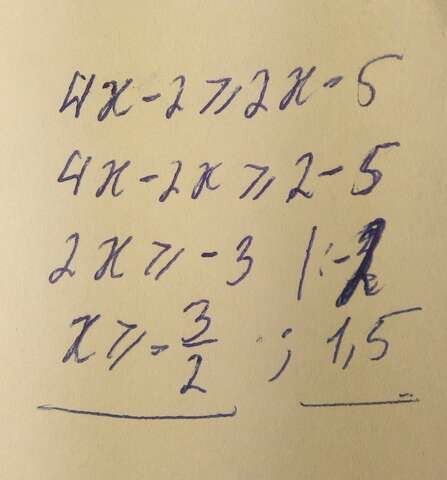 4x-2⩾2x-5
4x-2x⩾2-5
2x⩾-3 |:
x⩾-3/2 ; 1,5